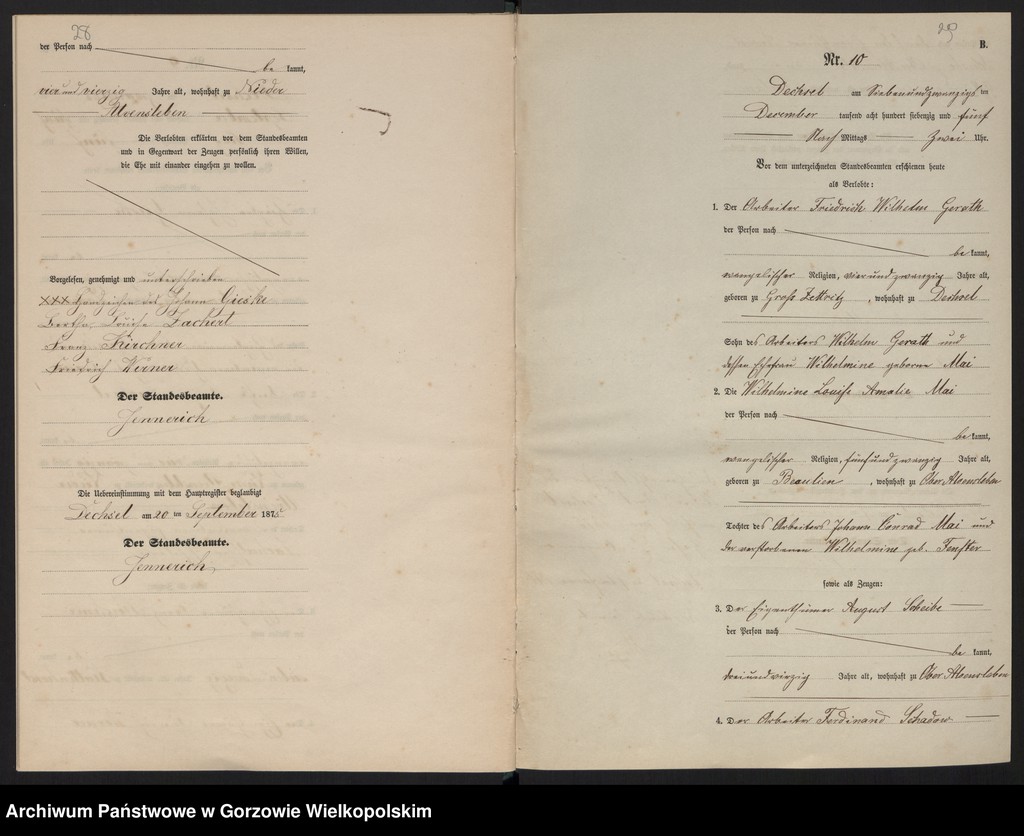 28
der Person nach
be kannt,
vier und vierzig Jahre alt, wohnhaft zu Nieder
Alvensleben
Die Verlobten erklärten vor dem Standesbeamten
und in Gegenwart der Zeugen persönlich ihren Willen,
die Ehe mit einander eingehen zu wollen.
Vorgelesen, genehmigt und unterschrieben
XXX Handzeichen des Johann Gieske
Bertha Louise Zachert
Franz Kirchner
Friedrich Werner
Der Standesbeamte.
Jennerich
Die Uebereinstimmung mit dem Hauptregister beglaubigt
Dechsel am 20 ten September 1875
Der Standesbeamte.
Jennerich
29
B.
Nr. 10
Dechsel am Siebenundzwanzigsten
December tausend acht hundert siebenzig und fünf
Nach Mittags Zwei Uhr.
Vor dem unterzeichneten Standesbeamten erschienen heute
als Verlobte:
1. Der Arbeiter Friedrich Wilhelm Gerath
der Person nach
be kannt,
evangelischer Religion, vier und zwanzig Jahre alt,
geboren zu Groß Zettritz, wohnhaft zu Dechsel
Sohn des Arbeiters Wilhelm Gerath und
dessen Ehefrau Wilhelmine geborene Mai
2. Die Wilhelmine Louise Amalie Mai
der Person nach
be kannt,
evangelischer Religion, fünf und zwanzig Jahre alt,
geboren zu Beaulieu, wohnhaft zu Ober Alvensleben
Tochter des Arbeiters Johann Conrad Mai und
der verstorbenen Wilhelmine geb. Fenster
sowie als Zeugen:
3. Der Eigenthümer August Scheibe
der Person nach
be kannt,
drei und vierzig Jahre alt, wohnhaft zu Ober Alvensleben
4. Der Arbeiter Ferdinand Schadow
Archiwum Państwowe w Gorzowie Wielkopolskim